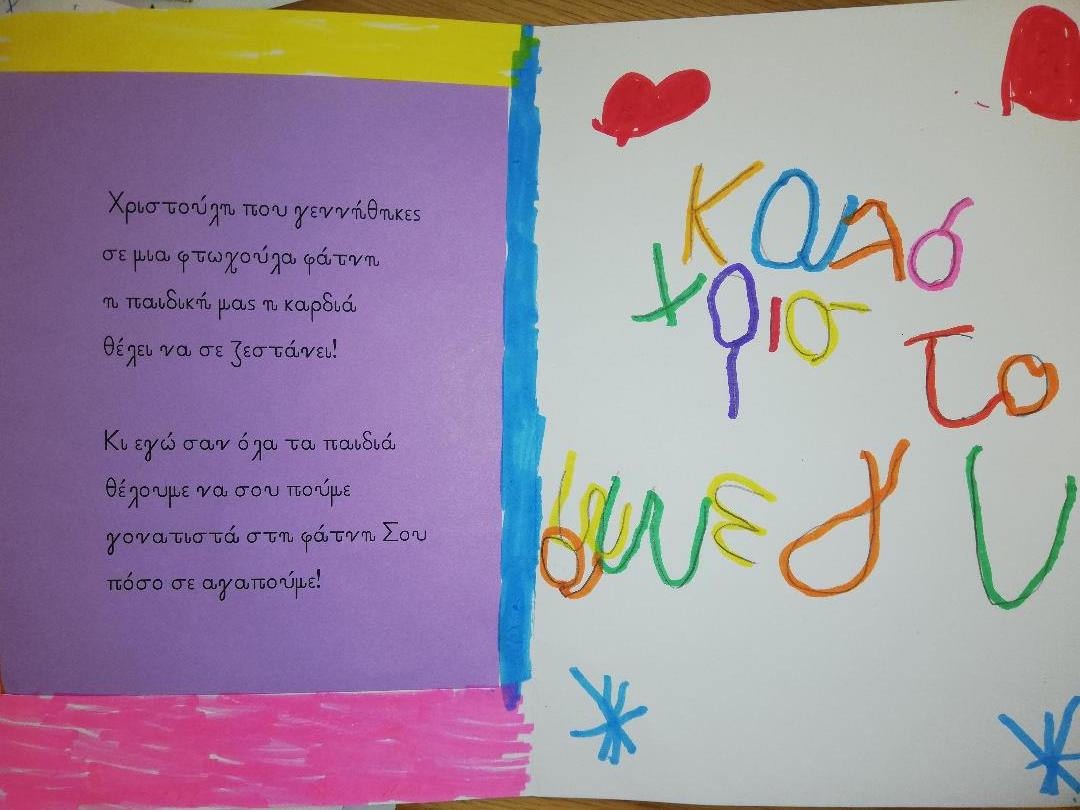 Χριστούλη που γεννήθηκες
σε μια φτωχούλα φάτνη
η παιδική μας η καρδιά
θέλει να σε ζεστάνει!
Κι εγώ σαν όλα τα παιδιά
θέλουμε να σου πούμε
γονατιστά στη φάτνη Σου
πόσο σε αγαπούμε!
Καλσ
χρισ
το